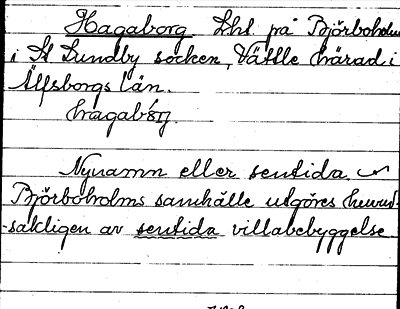 Hagaborg Lht. på Björboholm
i St Lundby socken, Vättle härad i
Älfsborgs län.
Nynamn eller sentida.
Björboholms samhälle utgöres huvud-
-sakligen av sentida villabebyggelse.